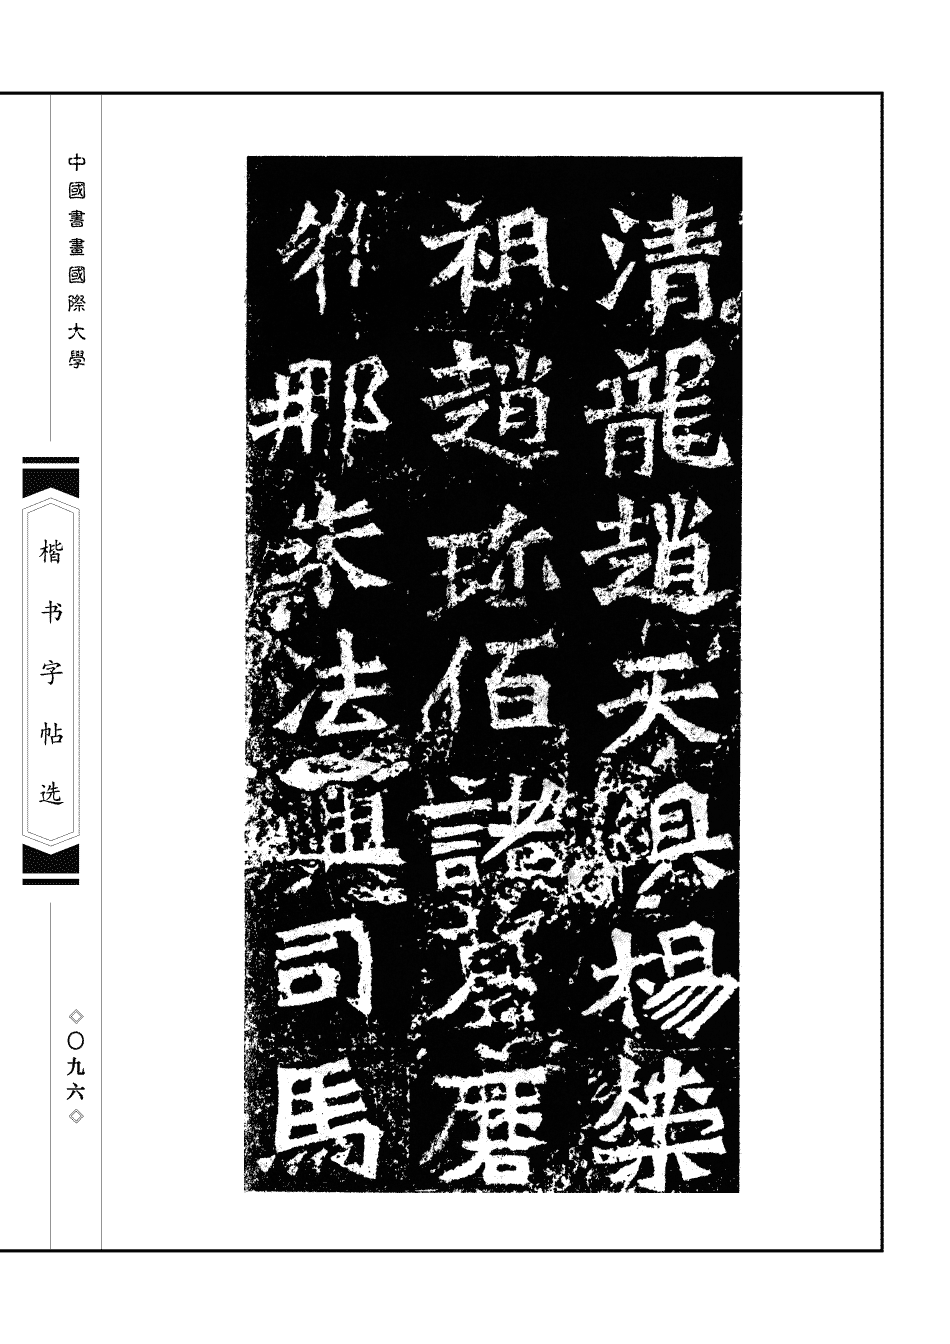 清龍趙天俱楊榮
祖趙珎佰諸葛磨
維那朱法興司馬
中國書畫國際大學
楷书字帖选
〇九六